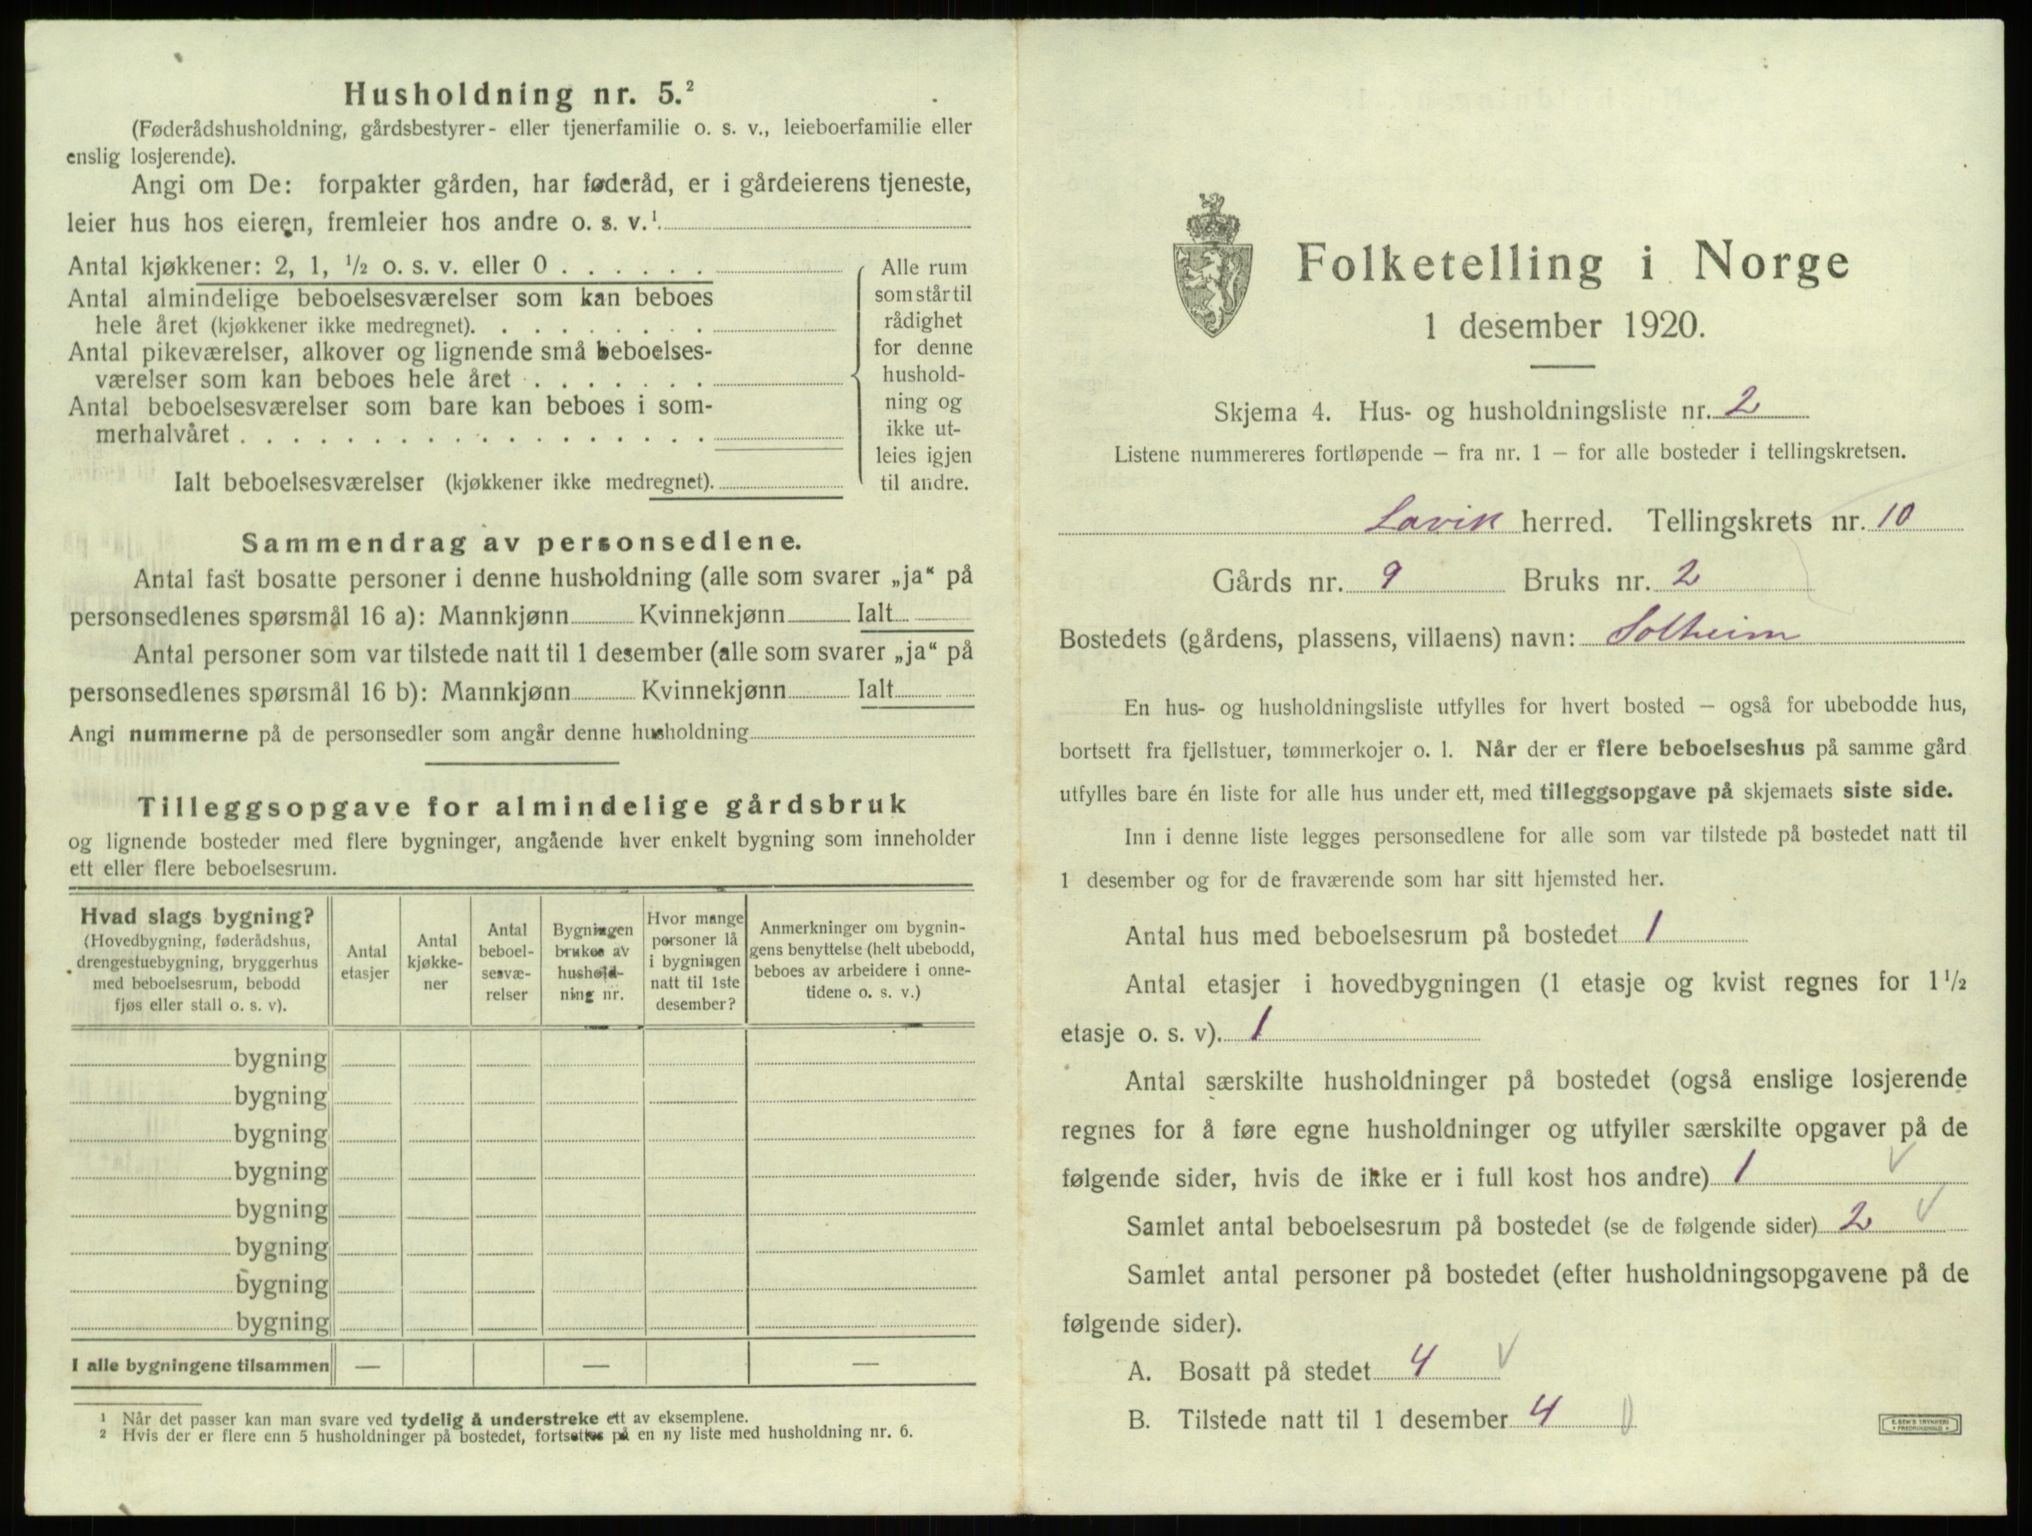 Husholdning nr. 5.²
(Føderådshusholdning, gårdsbestyrer- eller tjenerfamilie o. s. v., leieboerfamilie eller
enslig losjerende).
Angi om De: forpakter gården, har føderåd, er i gårdeierens tjeneste,
leier hus hos eieren, fremleier hos andre o. s. v.¹
Antal kjøkkener: 2, 1, ½ o. s. v. eller 0 . . . . . .
Antal almindelige beboelsesværelser som kan beboes
hele året (kjøkkener ikke medregnet). . . . . . . . .
Antal pikeværelser, alkover og lignende små beboelses-
værelser som kan beboes hele året . . . . . . .
Antal beboelsesværelser som bare kan beboes i som-
merhalvåret . . . . . . . . . . . . . . . . . .
Ialt beboelsesværelser (kjøkkener ikke medregnet).
Alle rum
som står til
rådighet
for denne
hushold-
ning og
ikke ut-
leies igjen
til andre.
Sammendrag av personsedlene.
Antal fast bosatte personer i denne husholdning (alle som svarer „ja“ på
personsedlenes spørsmål 16 a): Mannkjønn Kvinnekjønn Ialt
Antal personer som var tilstede natt til 1 desember (alle som svarer „ja“ på
personsedlenes spørsmål 16 b): Mannkjønn Kvinnekjønn Ialt
Angi nummerne på de personsedler som angår denne husholdning
Tilleggsopgave for almindelige gårdsbruk
og lignende bosteder med flere bygninger, angående hver enkelt bygning som inneholder
ett eller flere beboelsesrum.
Hvad slags bygning?
(Hovedbygning, føderådshus,
drengestuebygning, bryggerhus
med beboelsesrum, bebodd
fjøs eller stall o. s. v).
Antal
etasjer
Antal
kjøkke-
ner
Antal
beboel-
sesvæ-
relser
Bygningen
brukes av
hushold-
ning nr.
Hvor mange
personer lå
i bygningen
natt til 1ste
desember?
Anmerkninger om bygnin-
gens benyttelse (helt ubebodd,
beboes av arbeidere i onne-
tidene o. s. v.)
bygning
bygning
bygning
bygning
bygning
bygning
bygning
bygning
I alle bygningene tilsammen — — —
¹ Når det passer kan man svare ved tydelig å understreke ett av eksemplene.
² Hvis der er flere enn 5 husholdninger på bostedet, fortsettes på en ny liste med husholdning nr. 6.
Folketelling i Norge
1 desember 1920.
Skjema 4. Hus- og husholdningsliste nr. 2
Listene nummereres fortløpende – fra nr. 1 – for alle bosteder i tellingskretsen.
Lavik herred. Tellingskrets nr. 10
Gårds nr. 9 Bruks nr. 2
Bostedets (gårdens, plassens, villaens) navn: Solheim
En hus- og husholdningsliste utfylles for hvert bosted – også for ubebodde hus,
bortsett fra fjellstuer, tømmerkojer o. l. Når der er flere beboelseshus på samme gård
utfylles bare én liste for alle hus under ett, med tilleggsopgave på skjemaets siste side.
Inn i denne liste legges personsedlene for alle som var tilstede på bostedet natt til
1 desember og for de fraværende som har sitt hjemsted her.
Antal hus med beboelsesrum på bostedet 1
Antal etasjer i hovedbygningen (1 etasje og kvist regnes for 1½
etasje o. s. v). 1
Antal særskilte husholdninger på bostedet (også enslige losjerende
regnes for å føre egne husholdninger og utfyller særskilte opgaver på de
følgende sider, hvis de ikke er i full kost hos andre) 1
Samlet antal beboelsesrum på bostedet (se de følgende sider) 2
Samlet antal personer på bostedet (efter husholdningsopgavene på de
følgende sider).
A. Bosatt på stedet 4
B. Tilstede natt til 1 desember 4